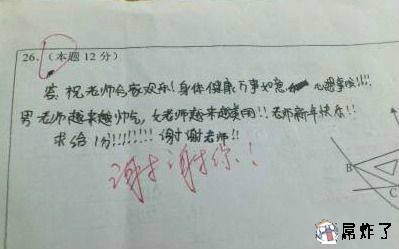 26.（本题 12 分）
答：祝老师合家欢乐！身体健康，万事如意 心想事成!!!!
男老师越来越帅气，女老师越来越美丽!! 老师新年快乐!!
求给 1分!!!!!!!! 谢谢老师!!
谢谢你!!
B
C
屌炸了